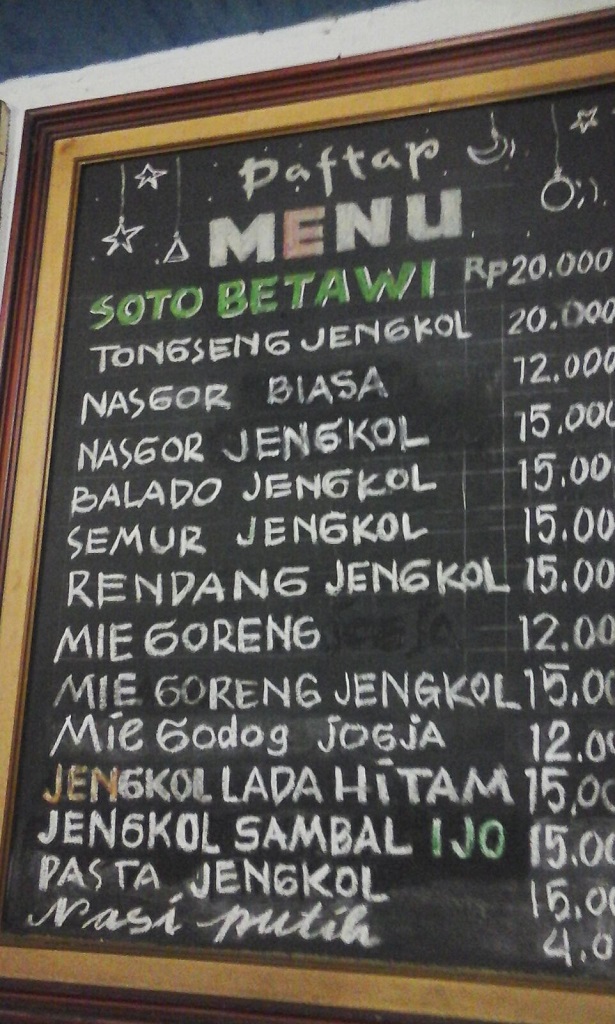 Daftar
MENU
SOTO BETAWI Rp20.000
TONGSENG JENGKOL 20.000
NASGOR BIASA 12.000
NASGOR JENGKOL 15.000
BALADO JENGKOL 15.00
SEMUR JENGKOL 15.00
RENDANG JENGKOL 15.00
MIE GORENG 12.00
MIE GORENG JENGKOL 15.00
Mie Godog JOGJA 12.00
JENGKOL LADA HiTAM 15.00
JENGKOL SAMBAL IJO 15.00
PASTA JENGKOL 15.00
Nasi putih 4.0